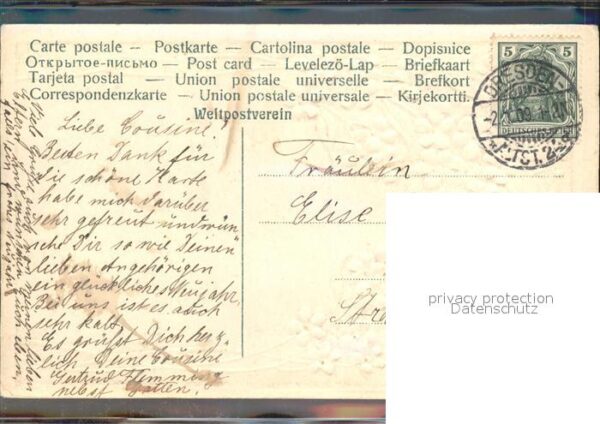 Carte postale — Postkarte — Cartolina postale — Dopisnice
Открытое-письмо — Post card — Levelező-Lap — Briefkaart
Tarjeta postal — Union postale universelle — Brefkort
Correspondenzkarte — Union postale universale — Kirjekortti.
Weltpostverein
5 5
DRESDEN
ALTST. 24
DEUTSCHES REICH
Liebe Cousine!
Besten Dank für
die schöne Karte
habe mich darüber
sehr gefreut und wün
sche Dir so wie Deinen
lieben Angehörigen
ein glückliches Neujahr.
Bei uns ist es auch
sehr kalt.
Es grüsst Dich herz-
lich Deine Cousine
Gertrud Flemming
nebst Gatten.
Fräulein
Elise
Str
Viele Grüsse auch von
lieben
privacy protection
Datenschutz